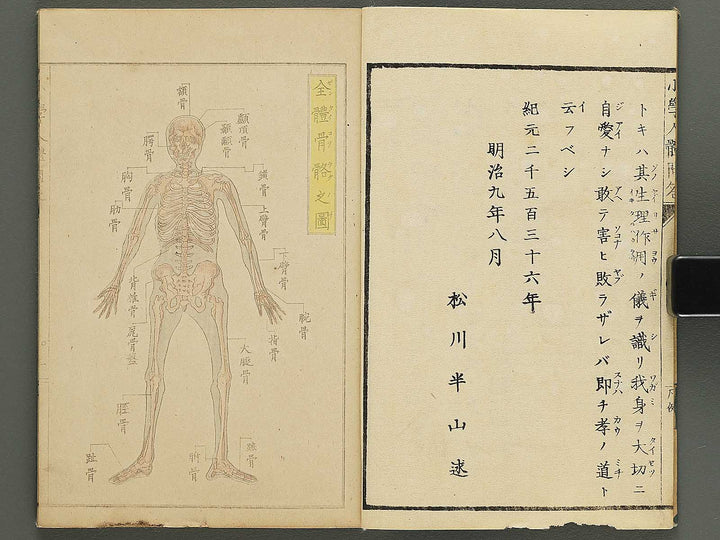 トキハ其生理作用ノ儀ヲ識リ我身ヲ大切ニ
自愛ナシ敢テ害ヒ敗ラザレバ即チ孝ノ道ト
云フベシ
紀元二千五百三十六年
明治九年八月
松川半山述
全體骨骼之圖
顱頂骨
顳顬骨
額骨
腭骨
鎖骨
胸骨
上臂骨
肋骨
下臂骨
脊椎骨
腕骨
指骨
尾骨盤
大腿骨
脛骨
趾骨